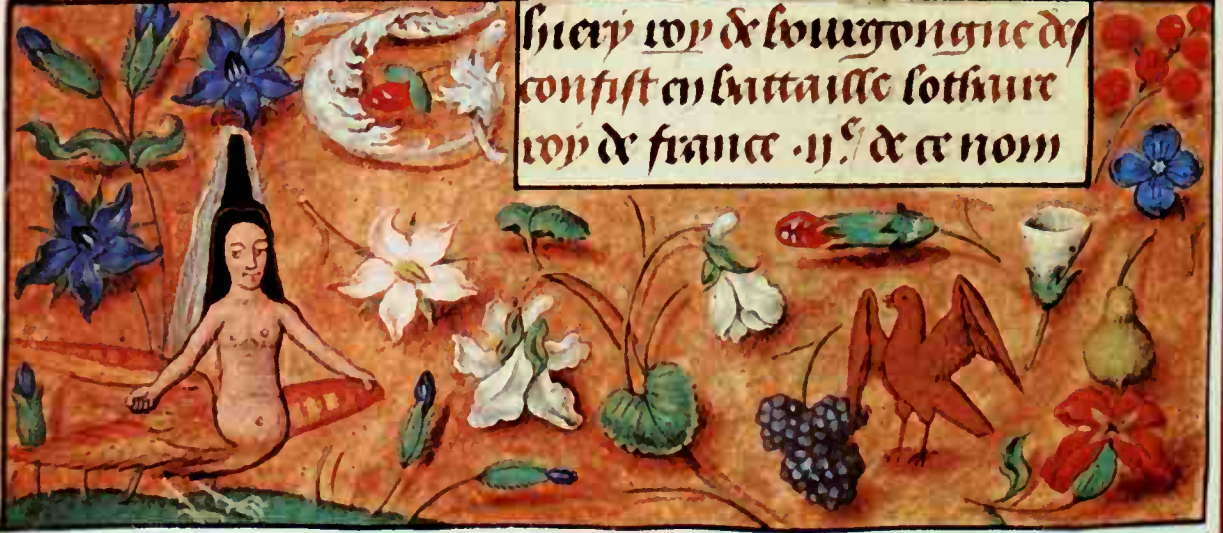 hiery roy de bourgongne des
confist en battaille lothaire
roy de france .ij.e de ce nom